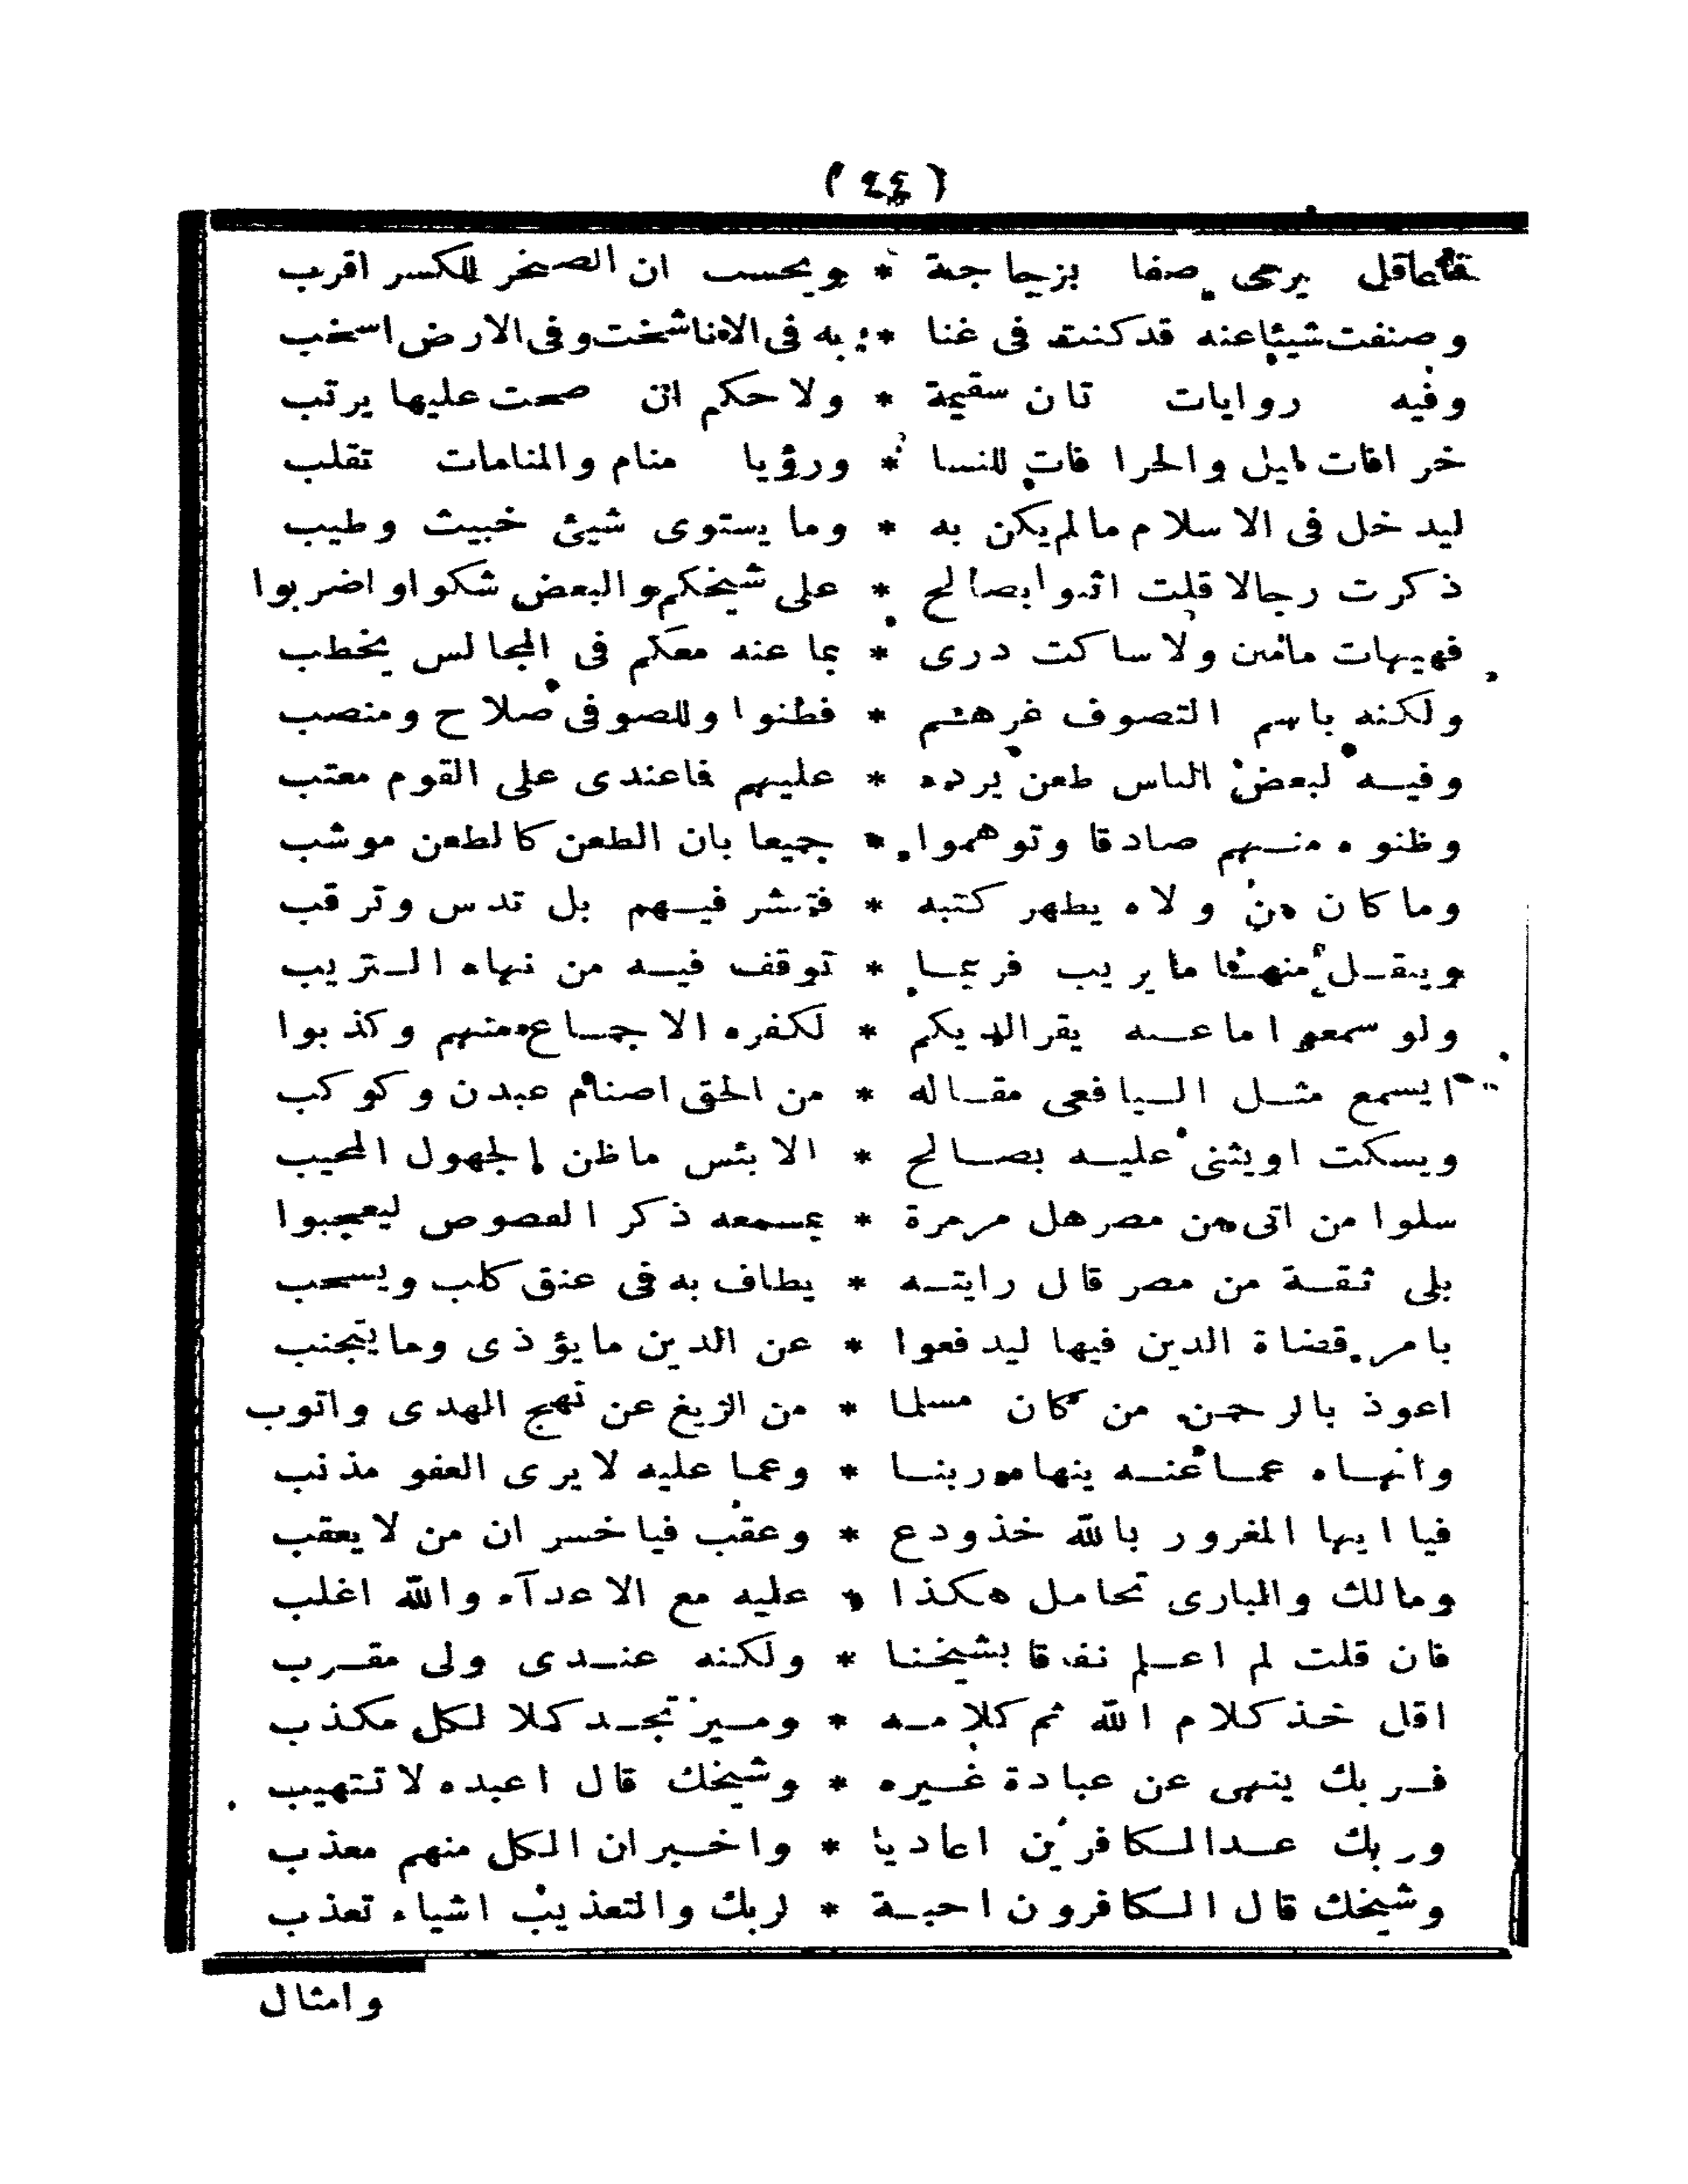 ( ٤٤ )
يرمى صفا بزجاجة * ويحسب ان الصخر للكسر اقرب
وصنفت شيئا عنه قد كنت فى غنا * به فى الاناشخت وفى الارض اسخب
وفيه روايات تان سقيمة * ولا حكم ان صحت عليها يرتب
خرافات ليل والخرافات للنسا * ورؤيا منام والمنامات تقلب
ليدخل فى الاسلام مالم يكن به * وما يستوى شيئ خبيث وطيب
ذكرت رجالا قلت اثنوا بصالح * على شيخكم والبعض شكوا او اضربوا
فهيهات مامثن ولا ساكت درى * بما عنه معكم فى المجالس يخطب
ولكنه باسم التصوف غرهم * فظنوا وللصوفى صلاح ومنصب
وفيه لبعض الناس طعن يرده * عليهم فاعندى على القوم معتب
وظنوه منهم صادقا وتوهموا * جميعا بان الطعن كالطعن موشب
وما كان من ولاه يظهر كتبه * فتنشر فيهم بل تدس وترقب
وينقل منها ما يريب فربما * توقف فيه من نهاه التريب
ولو سمعوا ما عنه يقرا لديكم * لكفره الاجماع منهم وكذبوا
ايسمع مثل اليافعى مقاله * من الحق اصنام عبدن وكوكب
ويسكت او يثنى عليه بصالح * الا بئس ماظن الجهول المحيب
سلوا من اتى من مصر هل مر مرة * بمسمعه ذكر الفصوص ليعجبوا
بلى ثقة من مصر قال رايته * يطاف به فى عنق كلب ويسحب
بامر قضاة الدين فيها ليدفعوا * عن الدين ما يؤذى وما يتجنب
اعوذ بالرحمن من كان مسلما * من الزيغ عن نهج الهدى واتوب
وانهاه عما عنه ينهاه ربنا * وعما عليه لا يرى العفو مذنب
فيا ايها المغرور بالله خذ ودع * وعقب فيا خسران من لا يعقب
ومالك والبارى تحامل هكذا * عليه مع الاعدآء والله اغلب
فان قلت لم اعلم نفاقا بشيخنا * ولكنه عندى ولى مقرب
اقل خذ كلام الله ثم كلامه * وميز تجد كلا لكل مكذب
فربك ينهى عن عبادة غيره * وشيخك قال اعبده لا تتهيب
وربك عد الكافرين اعاديا * واخبر ان الكل منهم معذب
وشيخك قال الكافرون احبة * لربك والتعذيب اشياء تعذب
وامثال